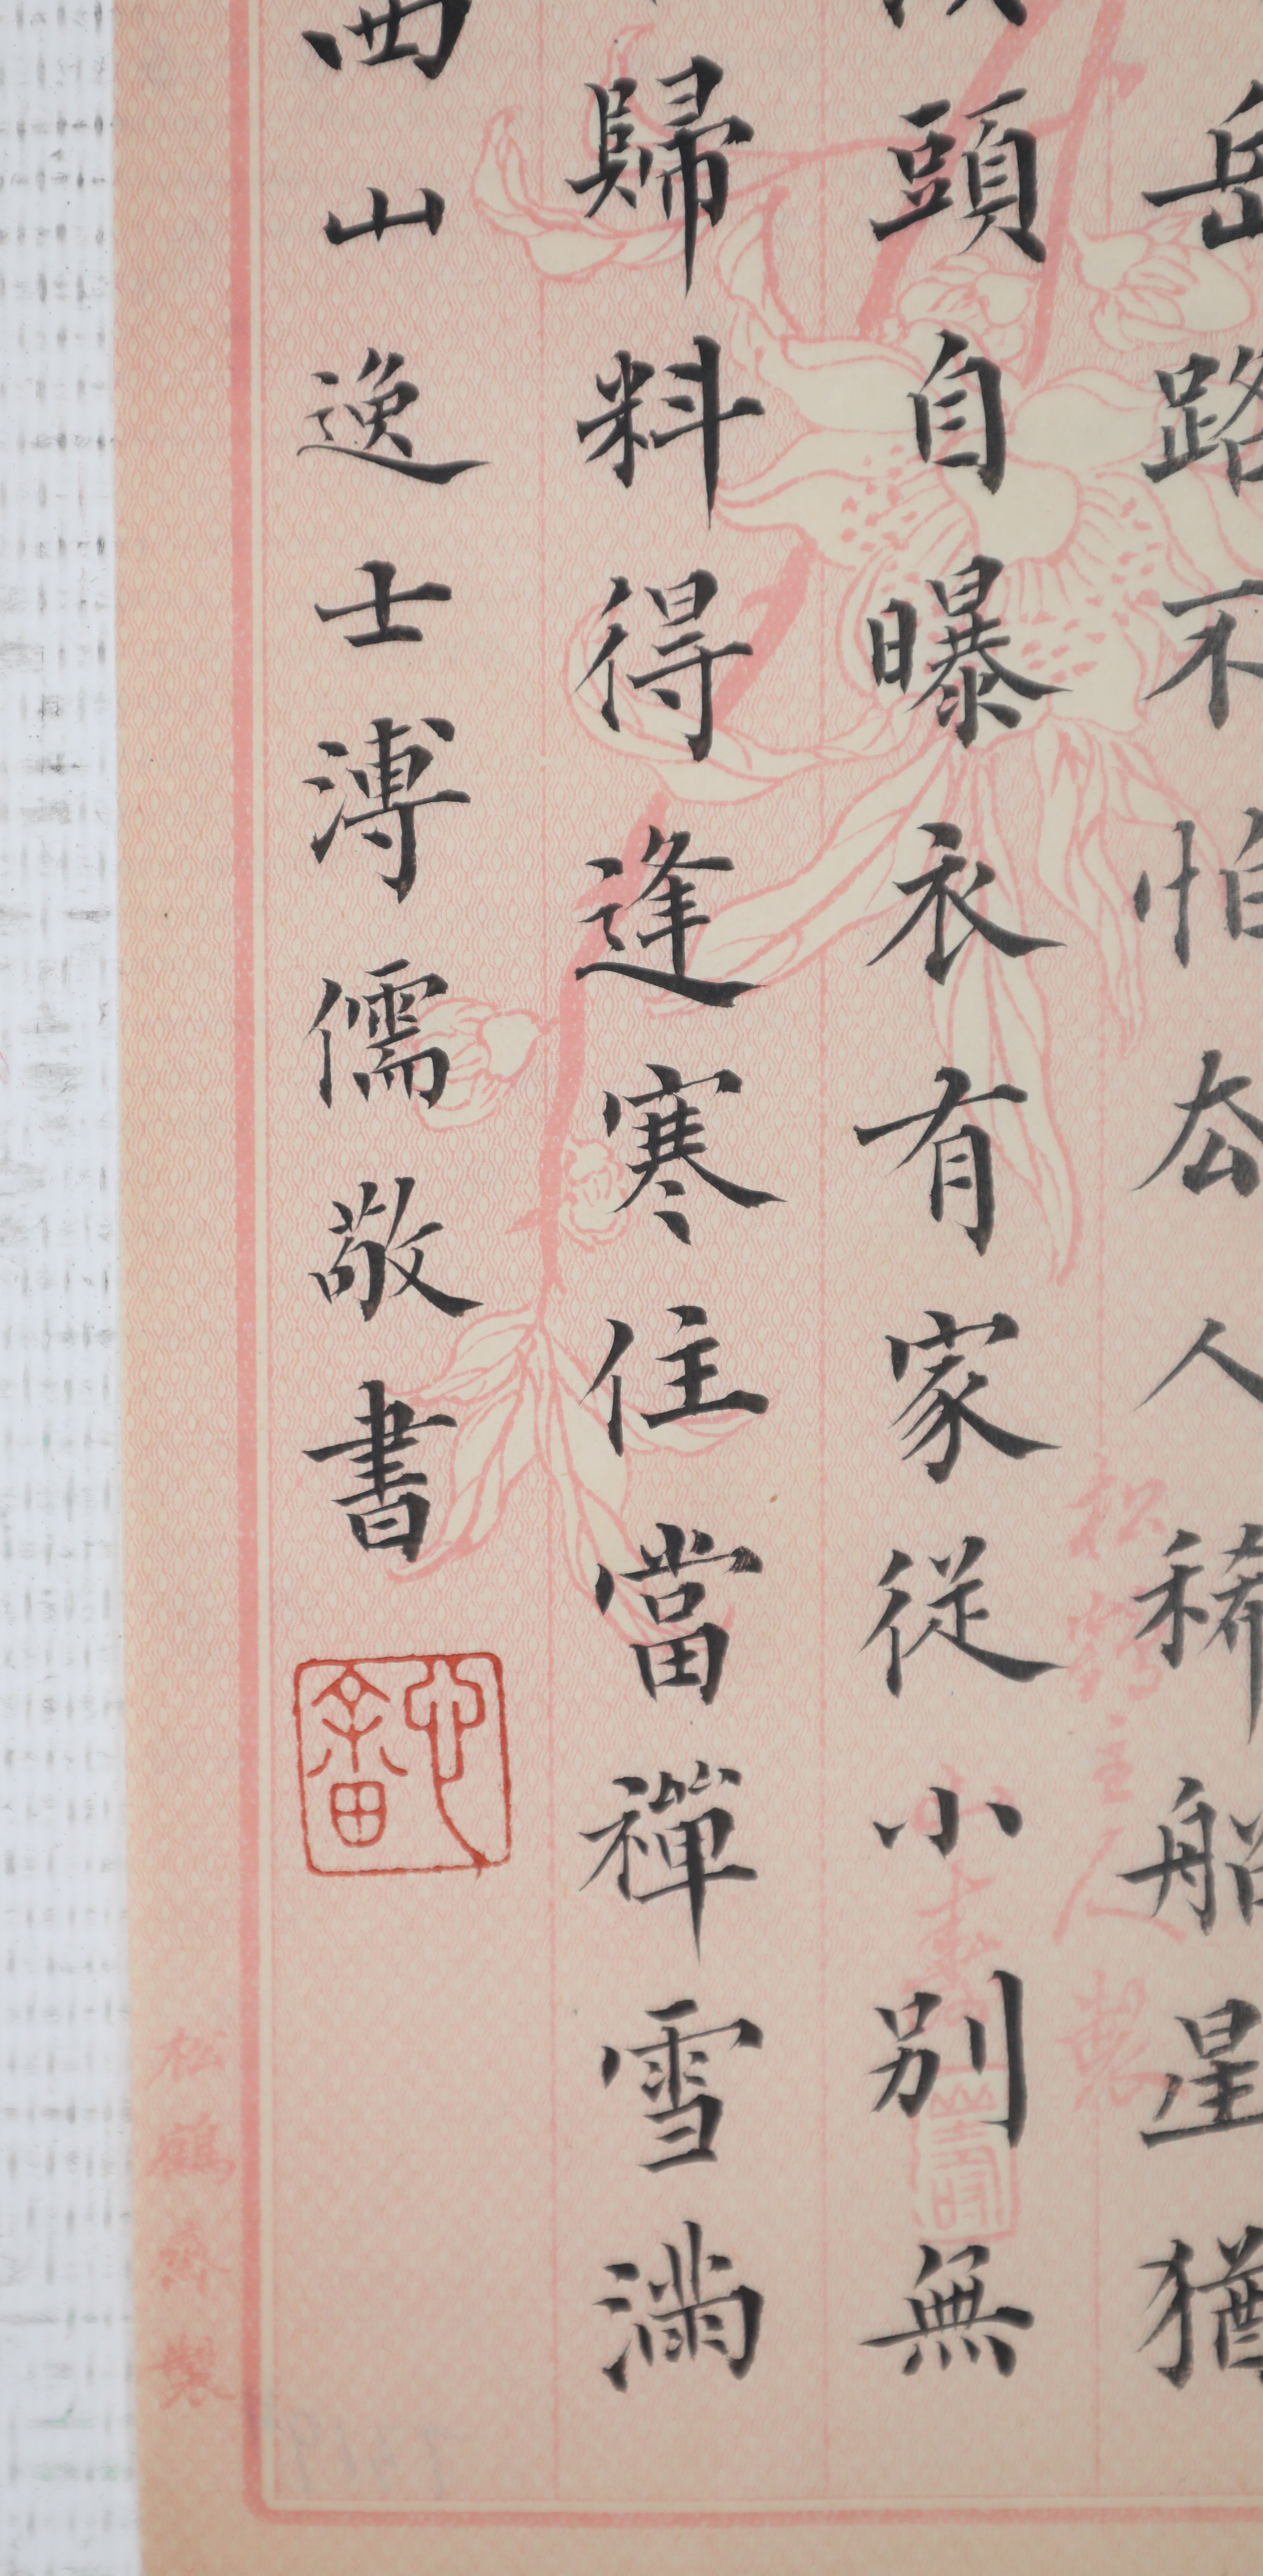 岳路不怕夳人稀船星猶
頭自曝衣有家從小別無
歸料得逢寒住當禪雪滿
西山逸士溥儒敬書
心畬
松鶴主人製
松鶴齋製